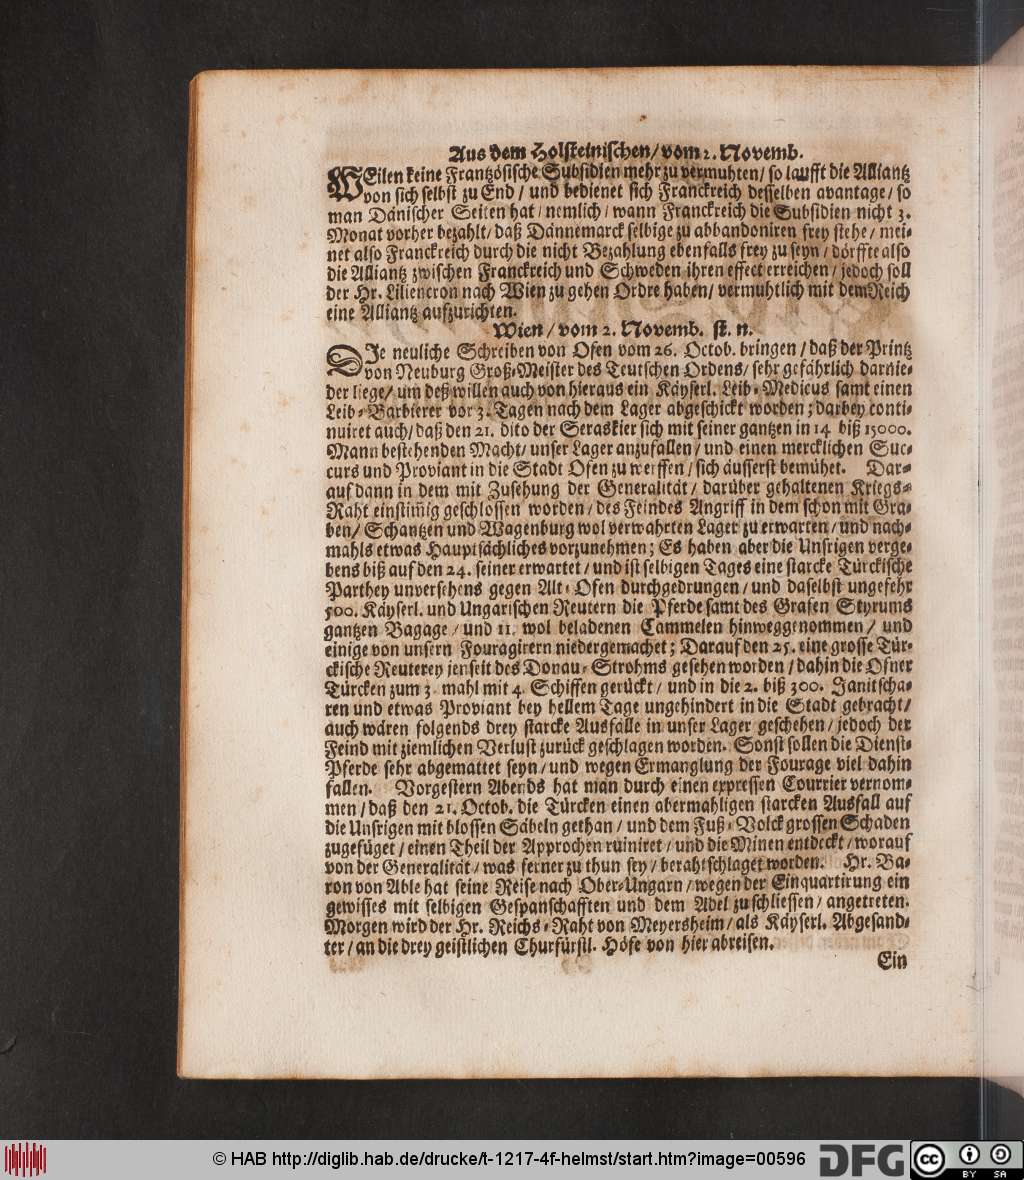 Aus dem Holsteinischen / vom 2. Novemb.
WEilen keine Frantzösische Subsidien mehr zu vermuhten / so laufft die Alliantz
von sich selbst zu End / und bedienet sich Franckreich desselben avantage / so
man Dänischer Seiten hat / nemlich / wann Franckreich die Subsidien nicht 3.
Monat vorher bezahlt / daß Dännemarck selbige zu abbandoniren frey stehe / mei-
net also Franckreich durch die nicht Bezahlung ebenfalls frey zu seyn / dörffte also
die Alliantz zwischen Franckreich und Schweden ihren effect erreichen / jedoch soll
der Hr. Liliencron nach Wien zu gehen Ordre haben / vermuhtlich mit dem Reich
eine Alliantz aufzurichten.
Wien / vom 2. Novemb. st. n.
DJe neuliche Schreiben von Ofen vom 26. Octob. bringen / daß der Printz
von Neuburg Groß-Meister des Teutschen Ordens / sehr gefährlich darnie-
der liege / um deß willen auch von hieraus ein Käyserl. Leib-Medicus samt einen
Leib-Barbierer vor 3. Tagen nach dem Lager abgeschickt worden; darbey conti-
nuiret auch / daß den 21. dito der Seraskier sich mit seiner gantzen in 14 biß 15000.
Mann bestehenden Macht / unser Lager anzufallen / und einen mercklichen Suc-
curs und Proviant in die Stadt Ofen zu werffen / sich äusserst bemühet. Dar-
auf dann in dem mit Zusehung der Generalität / darüber gehaltenen Kriegs-
Raht einstim̃ig geschlossen worden / des Feindes Angriff in dem schon mit Gra-
ben / Schantzen und Wagenburg wol verwahrten Lager zu erwarten / und nach-
mahls etwas Hauptsächliches vorzunehmen; Es haben aber die Unsrigen verge-
bens biß auf den 24. seiner erwartet / und ist selbigen Tages eine starcke Türckische
Parthey unversehens gegen Alt-Ofen durchgedrungen / und daselbst ungefehr
500. Käyserl. und Ungarischen Reutern die Pferde samt des Grafen Styrums
gantzen Bagage / und 11. wol beladenen Cammelen hinweggenommen / und
einige von unsern Fouragirern niedergemachet; Darauf den 25. eine grosse Tür-
ckische Reuterey jenseit des Donau-Strohms gesehen worden / dahin die Ofner
Türcken zum 3. mahl mit 4. Schiffen gerückt / und in die 2. biß 300. Janitscha-
ren und etwas Proviant bey hellem Tage ungehindert in die Stadt gebracht /
auch wären folgends drey starcke Ausfälle in unser Lager geschehen / jedoch der
Feind mit ziemlichen Verlust zurück geschlagen worden. Sonst sollen die Dienst-
Pferde sehr abgemattet seyn / und wegen Ermanglung der Fourage viel dahin
fallen. Vorgestern Abends hat man durch einen expressen Courrier vernom-
men / daß den 21. Octob. die Türcken einen abermahligen starcken Ausfall auf
die Unsrigen mit blossen Säbeln gethan / und dem Fuß-Volck grossen Schaden
zugefüget / einen Theil der Approchen ruiniret / und die Minen entdeckt / worauf
von der Generalität / was ferner zu thun sey / berahtschlaget worden. Hr. Ba-
ron von Able hat seine Reise nach Ober-Ungarn / wegen der Einquartirung ein
gewisses mit selbigen Gespanschafften und dem Adel zu schliessen / angetreten.
Morgen wird der Hr. Reichs-Raht von Meyersheim / als Käyserl. Abgesand-
ter / an die drey geistlichen Churfürstl. Höfe von hier abreisen.
Ein
© HAB http://diglib.hab.de/drucke/t-1217-4f-helmst/start.htm?image=00596
DFG
cc BY SA